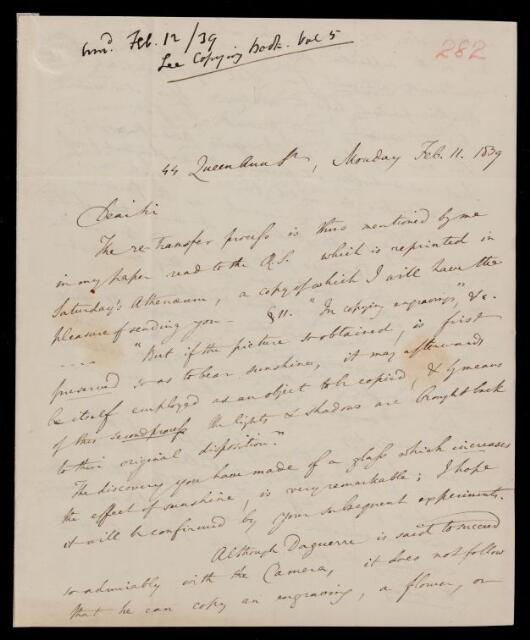 Feb. 12/39
See Copying book. Vol 5
282
44 Queen Ann St, Monday Feb. 11. 1839
Dear Sir
The re-transfer process is thus mentioned by me
in my paper read to the R.S. which is reprinted in
Saturday's Athenæum, a copy of which I will have the
pleasure of sending you — §11. "In copying engravings, &c.
.... "But if the picture so obtained, is first
preserved so as to bear sunshine, it may afterwards
be itself employed as an object to be copied, & by means
of this second process the lights & shadows are brought back
to their original disposition."
The discovery you have made of a glass which increases
the effect of sunshine, is very remarkable; I hope
it will be confirmed by your subsequent experiments.
Although Daguerre is said to succeed
so admirably with the Camera, it does not follow
that he can copy an engraving, a flower, or